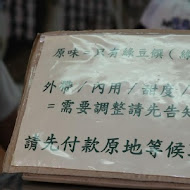 原味=只有綠豆饌(
外帶/內用/甜度/
=需要調整請先告知
請先付款原地等候